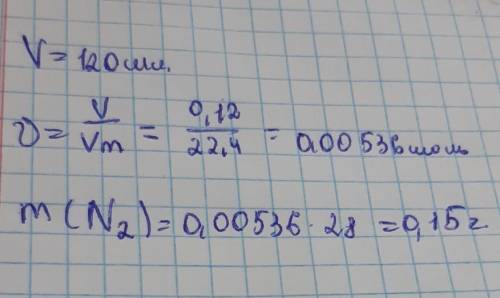 V = 120 мл.
ν = V/Vm = 0,12/22,4 = 0,00536 моль
m (N₂) = 0,00536 · 28 = 0,15 г